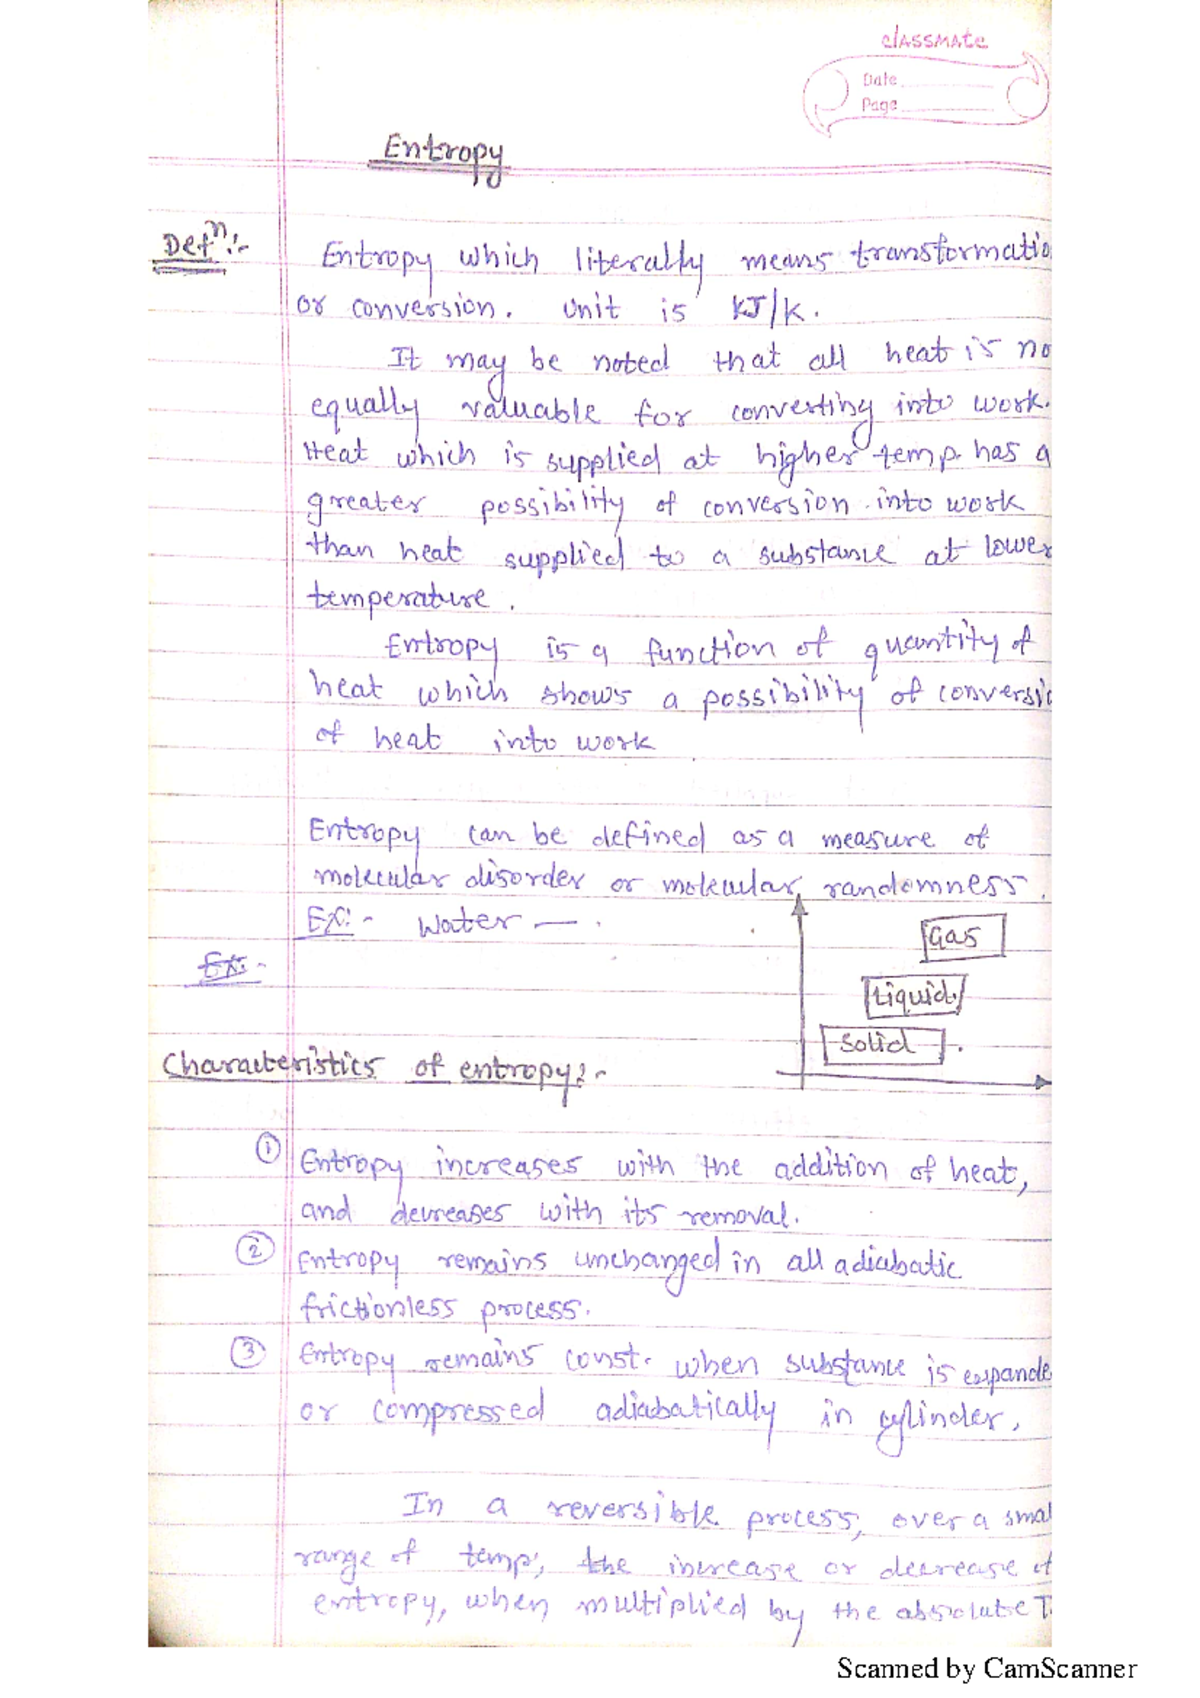 classmate
Date
Page
Entropy
Defn:-
Entropy which literally means transformatio
or conversion. Unit is KJ/K.
It may be noted that all heat is no
equally valuable for converting into work.
Heat which is supplied at higher temp. has a
greater possibility of conversion into work
than heat supplied to a substance at lower
temperature.
Entropy is a function of quantity of
heat which shows a possibility of conversio
of heat into work
Entropy can be defined as a measure of
molecular disorder or molecular randomness.
Ex:- Water —.
Ex:-
Gas
Liquid
Solid
Characteristics of entropy:-
① Entropy increases with the addition of heat,
and decreases with its removal.
② Entropy remains unchanged in all adiabatic
frictionless process.
③ Entropy remains const. when substance is expande
or compressed adiabatically in cylinder.
In a reversible process, over a smal
range of temp, the increase or decrease of
entropy, when multiplied by the absolute T.
Scanned by CamScanner